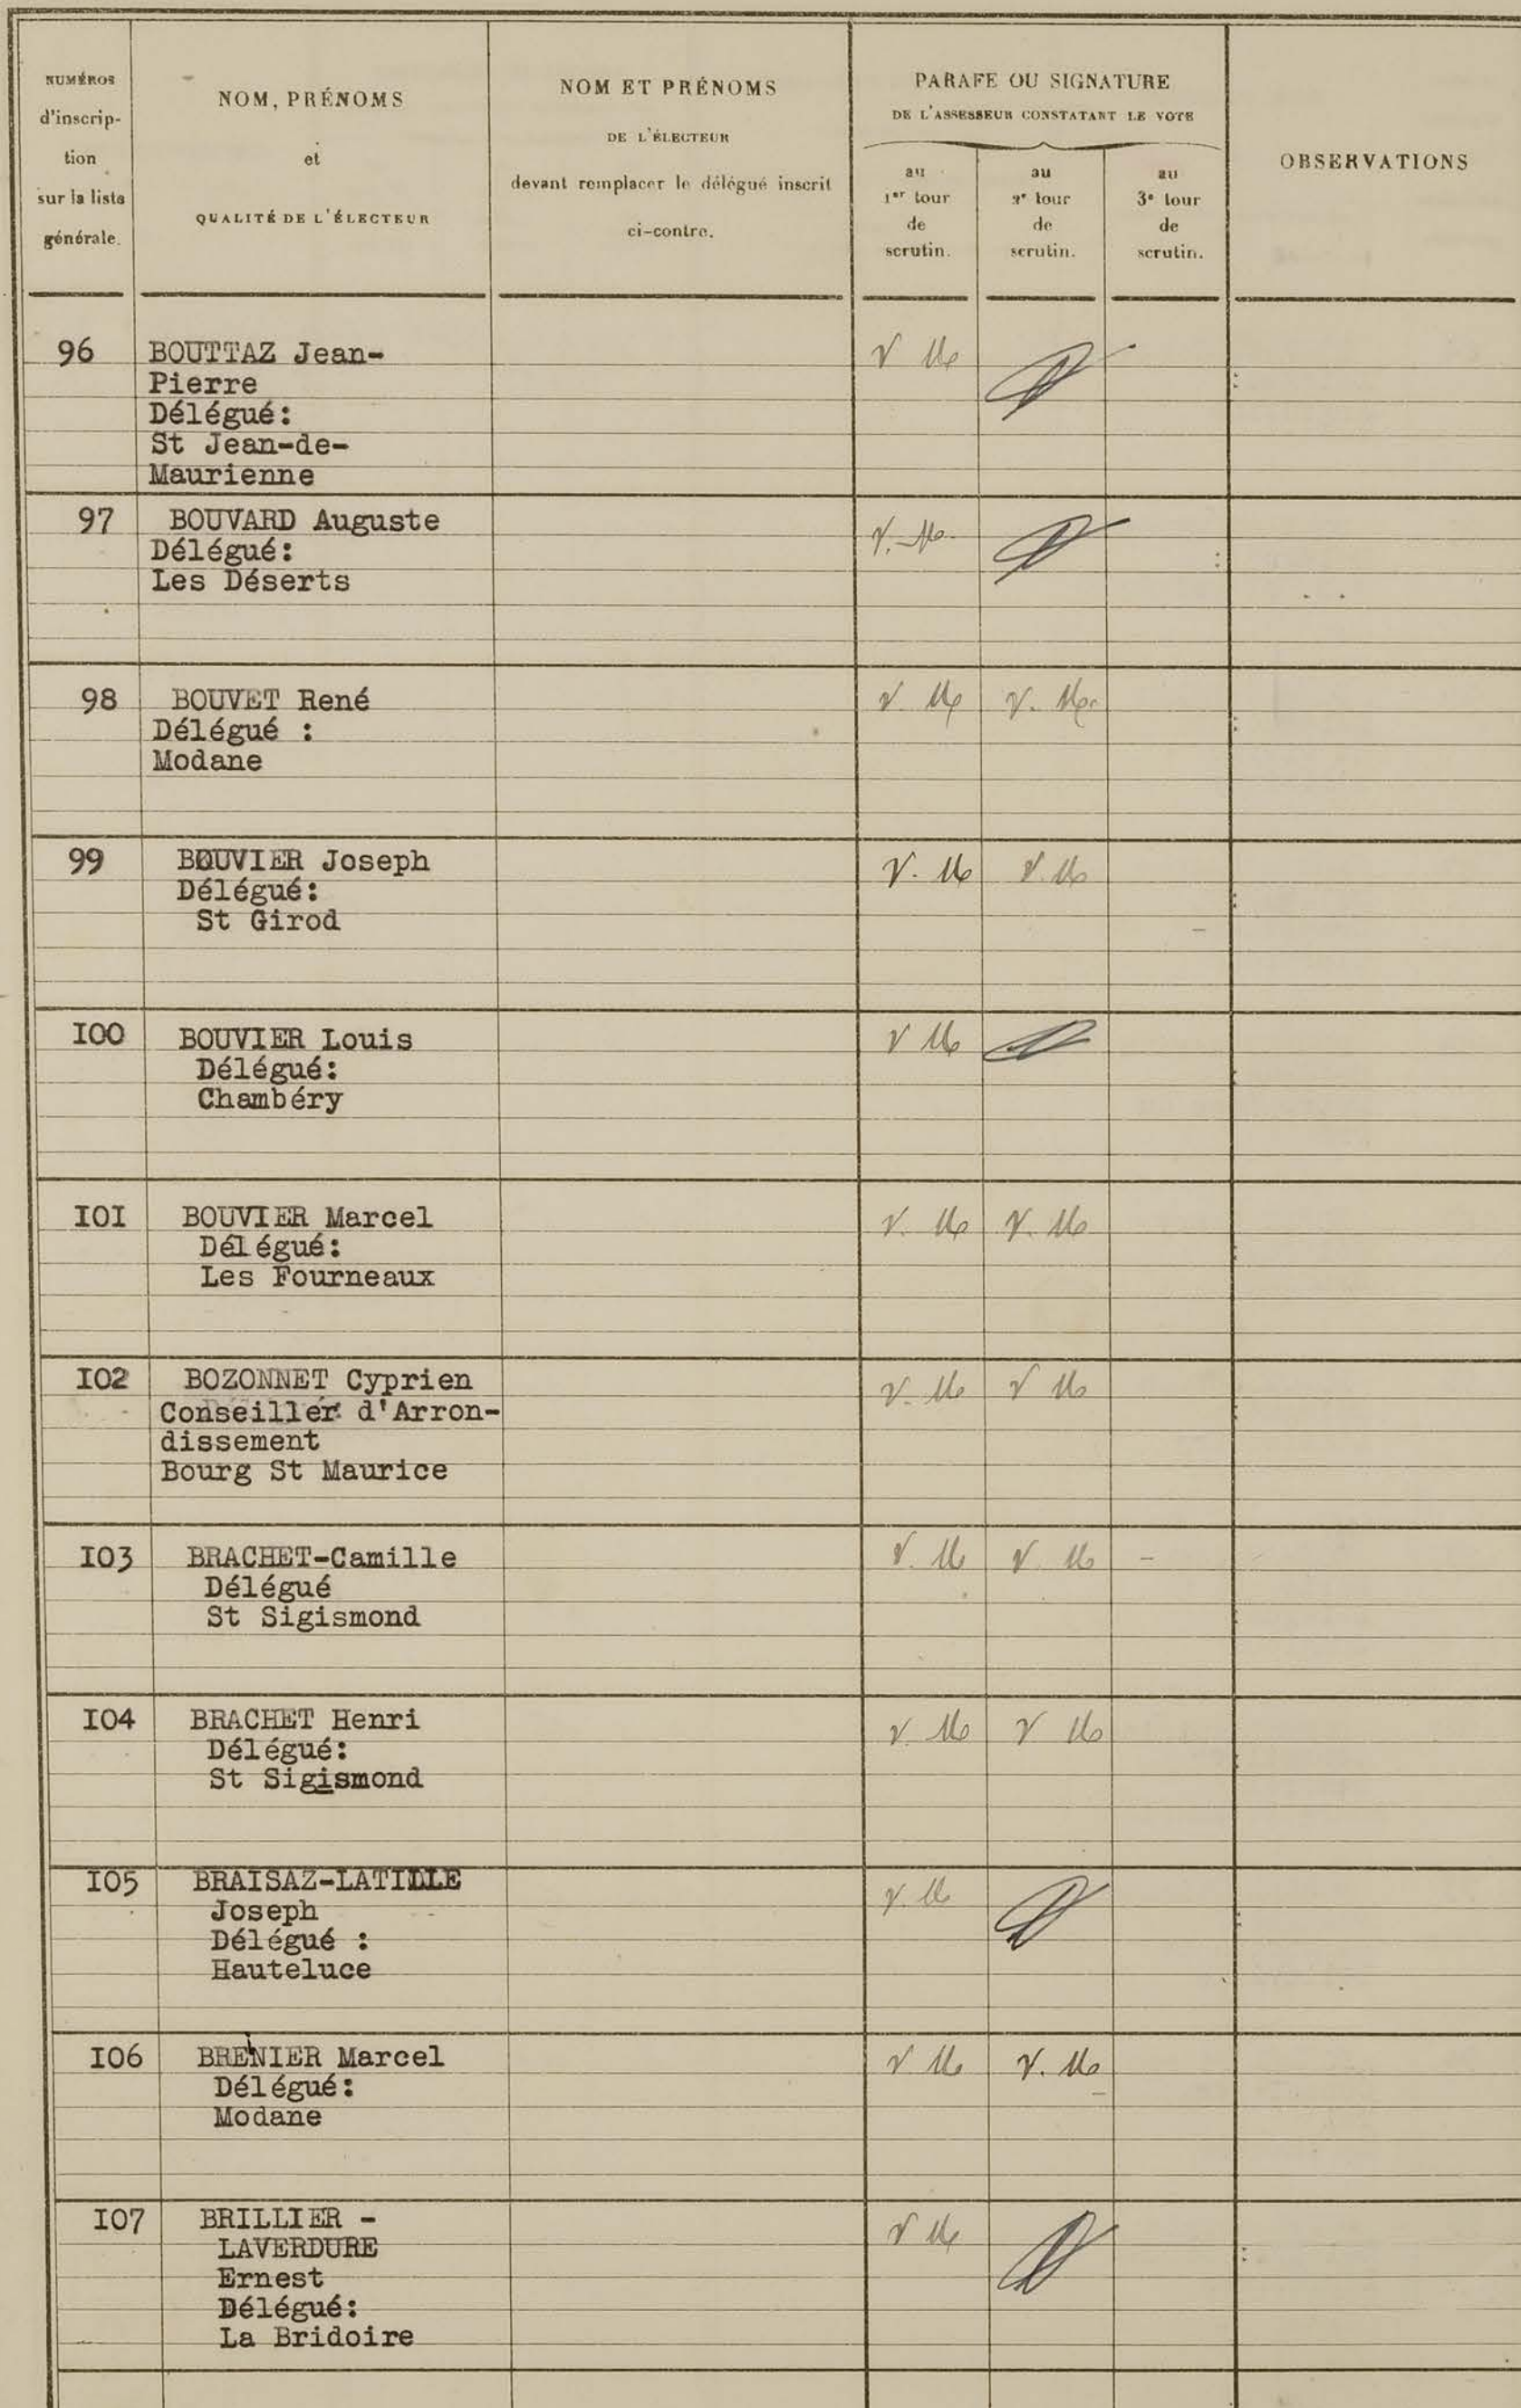 NUMÉROS
d'inscrip-
tion
sur la liste
générale.
NOM, PRÉNOMS
et
QUALITÉ DE L'ÉLECTEUR
NOM ET PRÉNOMS
DE L'ÉLECTEUR
devant remplacer le délégué inscrit
ci-contre.
PARAFE OU SIGNATURE
DE L'ASSESSEUR CONSTATANT LE VOTE
au
1er tour
de
scrutin.
au
2e tour
de
scrutin.
au
3e tour
de
scrutin.
OBSERVATIONS
96 BOUTTAZ Jean-
Pierre
Délégué:
St Jean-de-
Maurienne
97 BOUVARD Auguste
Délégué:
Les Déserts
98 BOUVET René
Délégué :
Modane
99 BOUVIER Joseph
Délégué:
St Girod
I00 BOUVIER Louis
Délégué:
Chambéry
I0I BOUVIER Marcel
Délégué:
Les Fourneaux
I02 BOZONNET Cyprien
Conseiller d'Arron-
dissement
Bourg St Maurice
I03 BRACHET-Camille
Délégué
St Sigismond
I04 BRACHET Henri
Délégué:
St Sigismond
I05 BRAISAZ-LATILLE
Joseph
Délégué :
Hauteluce
I06 BRENIER Marcel
Délégué:
Modane
I07 BRILLIER -
LAVERDURE
Ernest
Délégué:
La Bridoire